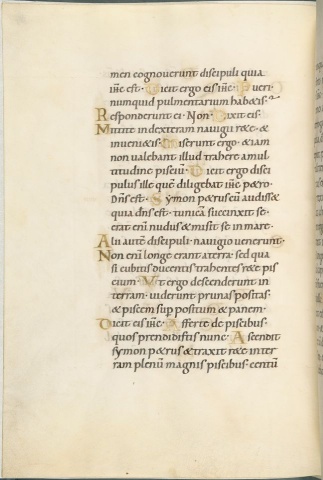 men cognoverunt discipuli quia
ih̅c est · Dicit ergo eis ih̅c · Pueri ·
numquid pulmentarium hab&is ·
Responderunt ei · Non · Dixit eis ·
Mittite in dexteram navigii r&e · &
inveni&is · Miserunt ergo · & iam
non valebant illud trahere a mul
titudine pisciu̅ · Dicit ergo disci
pulus ille que̅ diligebat ih̅c p&ro ·
Dn̅s est · Symon p&rus cu̅ audiss&
quia dn̅s est · tunica̅ succinxit se ·
erat eni̅ nudus & misit se in mare ·
Alii aute̅ discipuli · navigio venerunt ·
Non eni̅ longe erant a terra · sed qua
si cubitis ducentis trahentes r&e pis
cium · Ut ergo descenderunt in
terram · viderunt prunas positas ·
& piscem sup positum & panem ·
Dicit eis ih̅c · Afferte de piscibus ·
quos prendidistis nunc · Ascendit
symon p&rus & traxit r&e in ter
ram plenu̅ magnis piscibus · centu̅